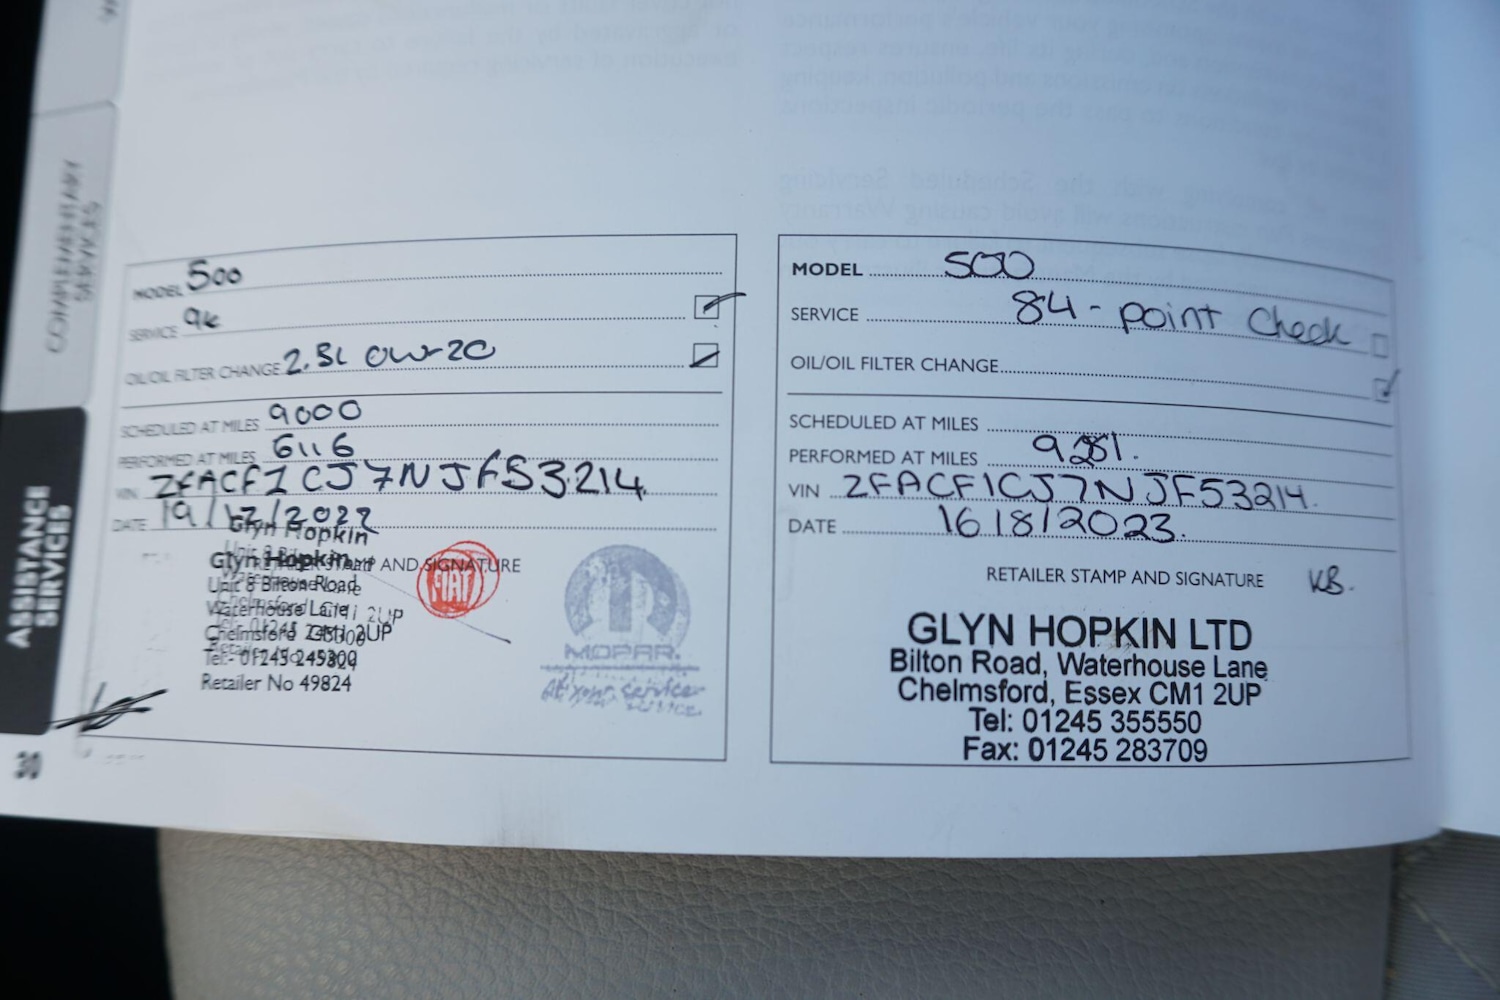 COMPLEMENTARY
SERVICES
ASSISTANCE
SERVICES
30
MODEL 500
SERVICE 9k
OIL/OIL FILTER CHANGE 2.5L 0W-20
SCHEDULED AT MILES 9000
PERFORMED AT MILES 6116
VIN ZFACF1CJ7NJF53214
DATE 19/12/2022
RETAILER STAMP AND SIGNATURE
Glyn Hopkin
Glyn Hopkin
Unit 8 Bilton Road
Waterhouse Lane
Chelmsford CM1 2UP
Tel:- 01245 245300
Retailer No 49824
FIAT
MOPAR.
At your service
MODEL 500
SERVICE 84-point Check
OIL/OIL FILTER CHANGE
SCHEDULED AT MILES
PERFORMED AT MILES 9281.
VIN ZFACF1CJ7NJF53214.
DATE 16/8/2023.
RETAILER STAMP AND SIGNATURE KB.
GLYN HOPKIN LTD
Bilton Road, Waterhouse Lane
Chelmsford, Essex CM1 2UP
Tel: 01245 355550
Fax: 01245 283709